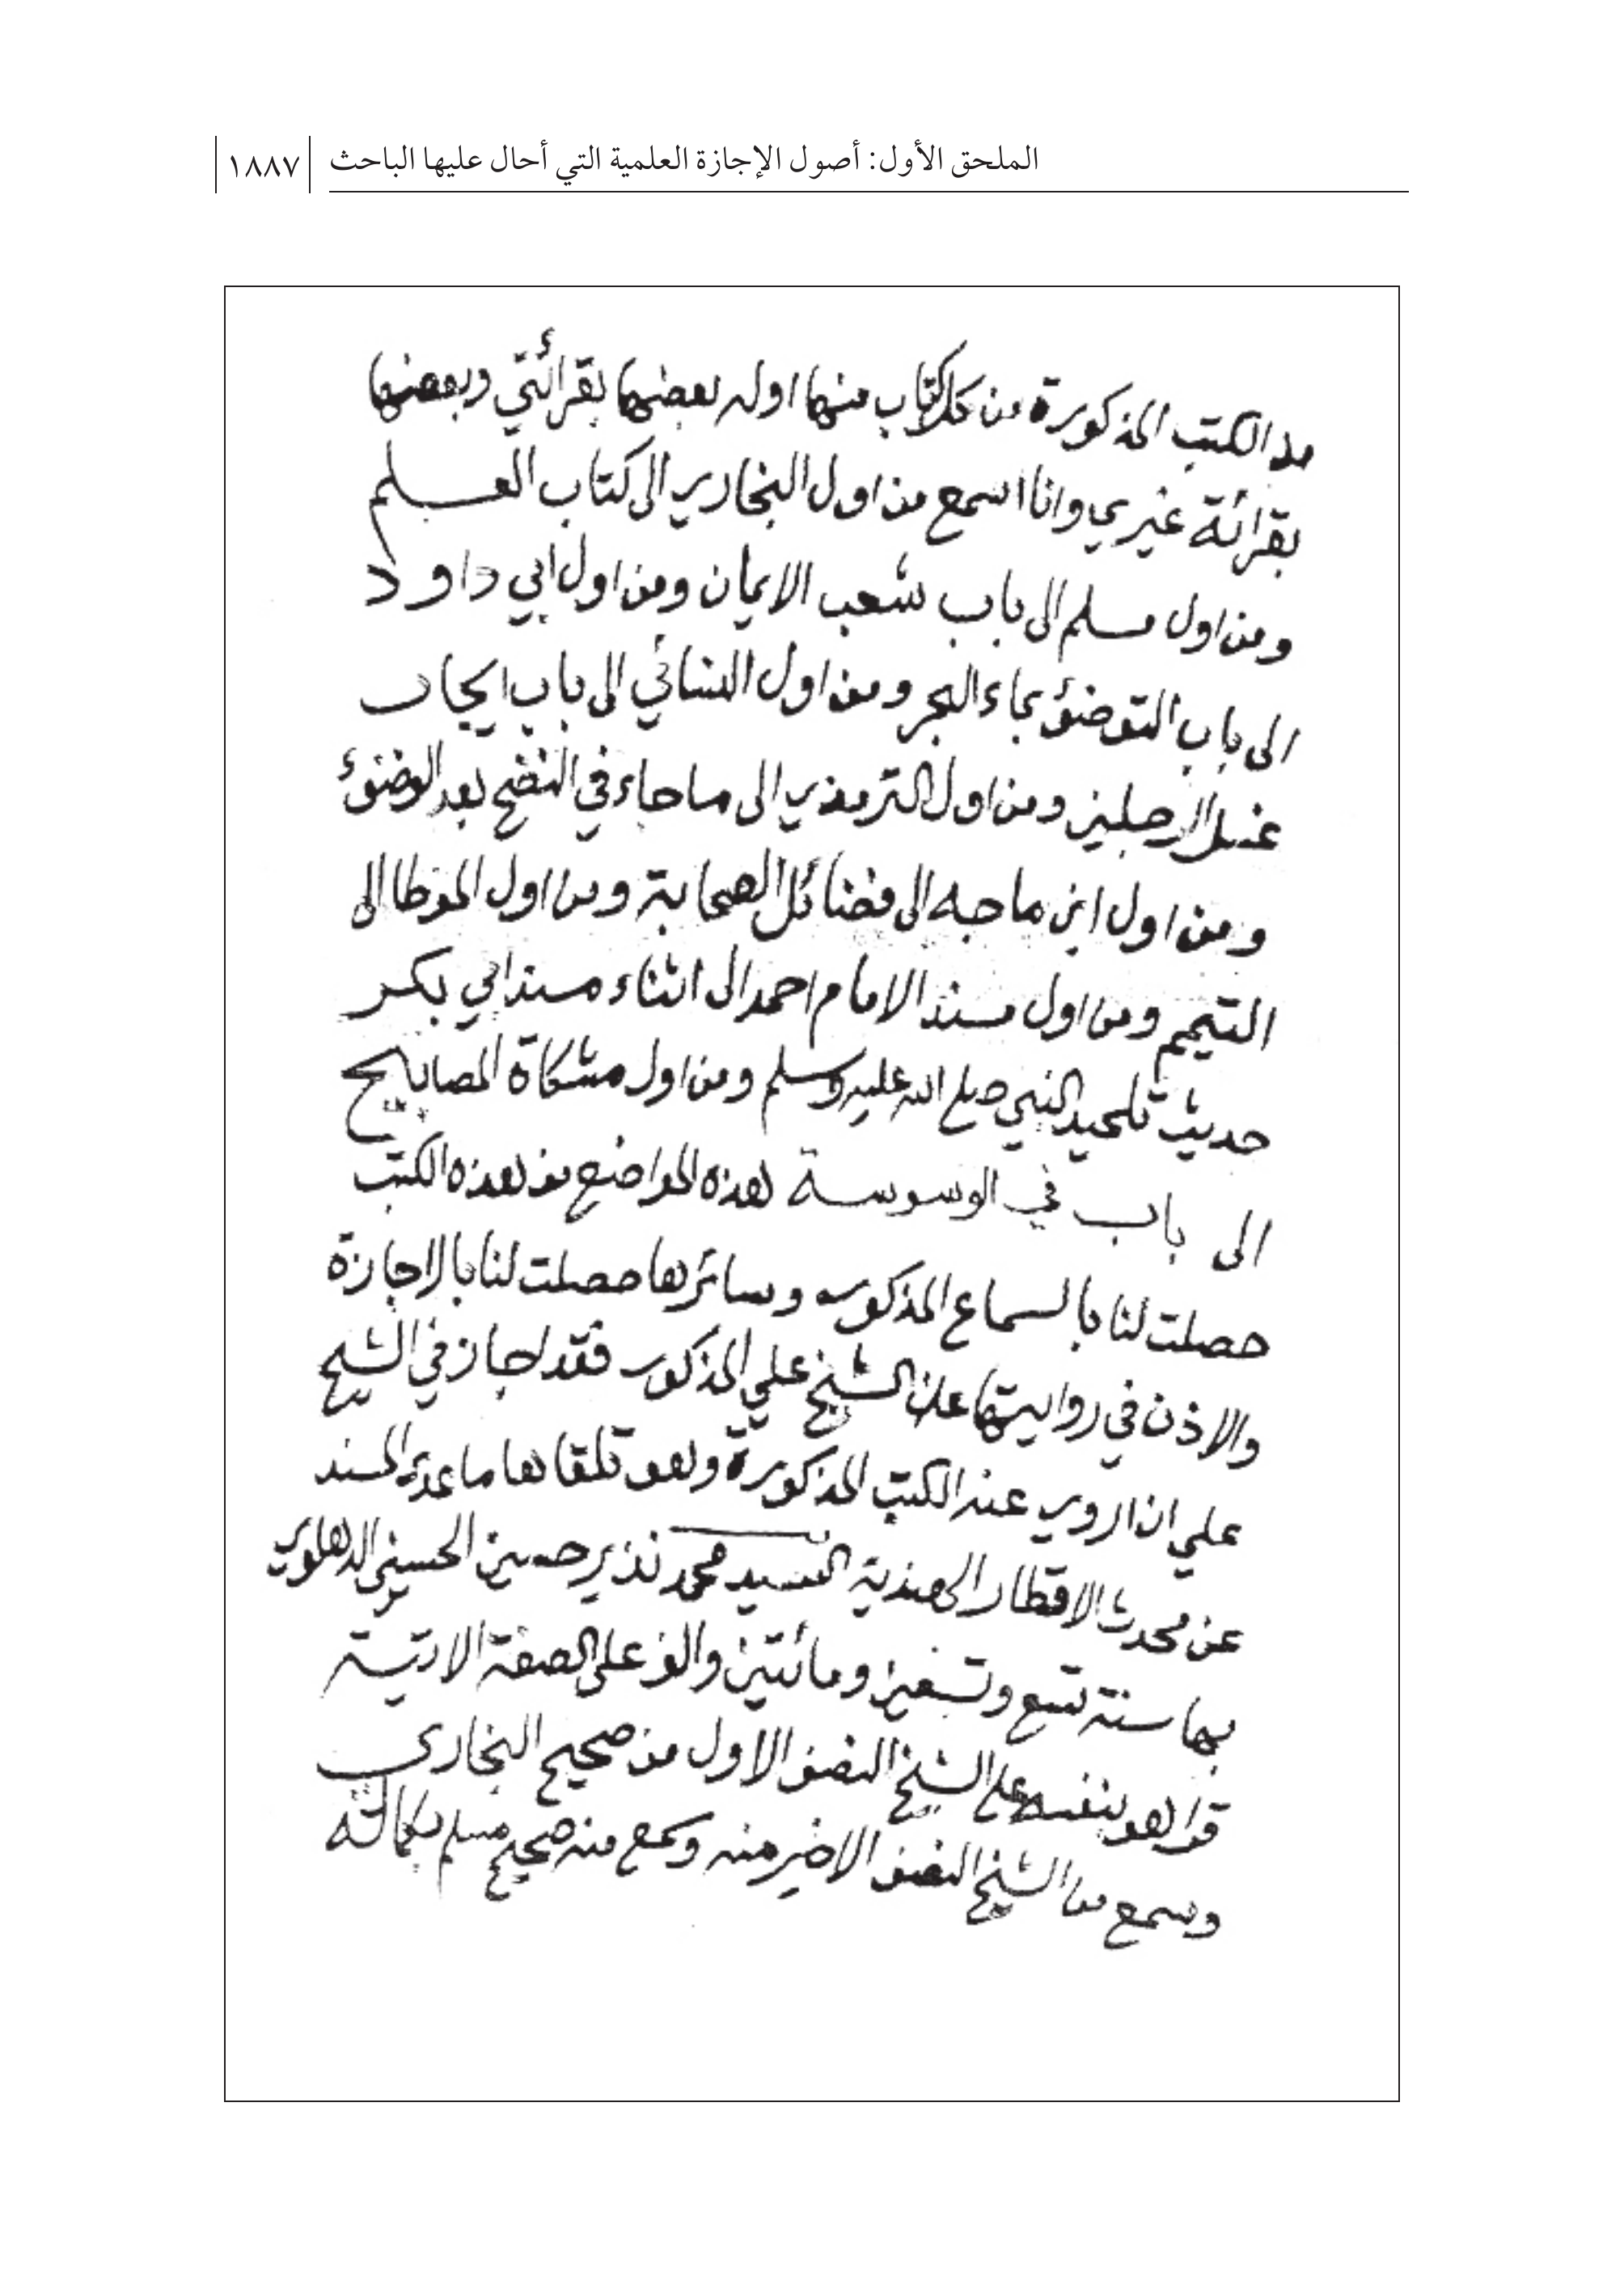 الملحق الأول: أصول الإجازة العلمية التي أحال عليها الباحث | ١٨٨٧
من الكتب المذكورة من كل كتاب منها اوله بعضها بقرائتي وبعضها
بقرائة غيري وانا اسمع من اول البخاري الى كتاب العلم
ومن اول مسلم الى باب شعب الايمان ومن اول ابي داود
الى باب التوضئ بماء البحر ومن اول النسائي الى باب ايجاب
غسل الرجلين ومن اول الترمذي الى ما جاء في النضح بعد الوضوء
ومن اول ابن ماجه الى فضائل الصحابة ومن اول الموطا الى
التيمم ومن اول مسند الامام احمد الى اثناء مسند ابي بكر
حديث تلحيد النبي صلى الله عليه وسلم ومن اول مشكاة المصابيح
الى باب في الوسوسة هذه المواضع من هذه الكتب
حصلت لنا بالسماع المذكور وسائرها حصلت لنا بالاجازة
والاذن في روايتها عن الشيخ علي المذكور فقد اجازني الشيخ
علي ان اروي عنه الكتب المذكورة وهو تلقاها ما عدى المسند
عن محدث الاقطار الهندية السيد محمد نذير حسين الحسيني الدهلوي
بها سنة تسع وتسعين ومائتين والف على الصفة الاتية
قرا هو بنفسه على الشيخ النصف الاول من صحيح البخاري
وسمع من الشيخ النصف الاخير منه وسمع منه صحيح مسلم بكماله